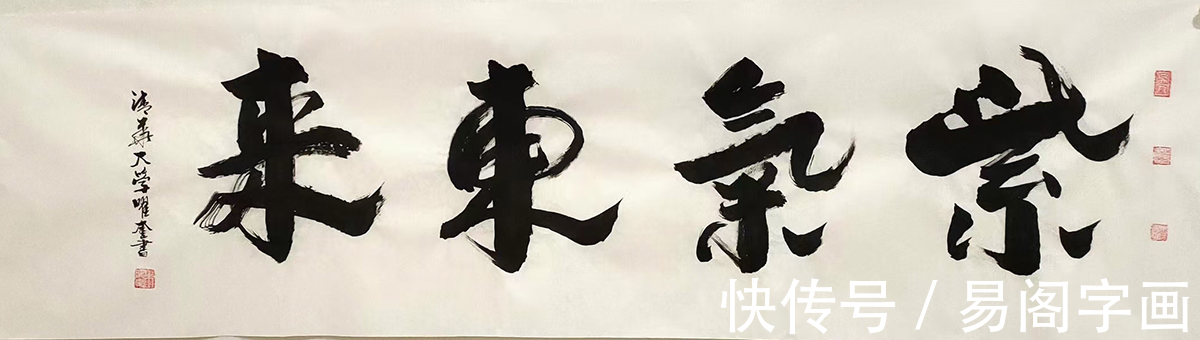 紫氣東来
清華大学曜奎書
快传号 / 易阁字画